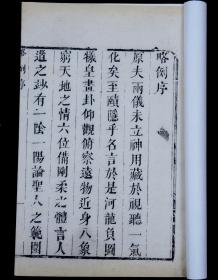 略例序
原夫兩儀未立神用藏於視聽一氣
化矣至賾隱乎名言於是河龍負圖
犧皇畫卦仰觀俯察遠物近身八象
窮天地之情六位備剛柔之體言大
道之妙有一陰一陽論聖人之範圍
略例序